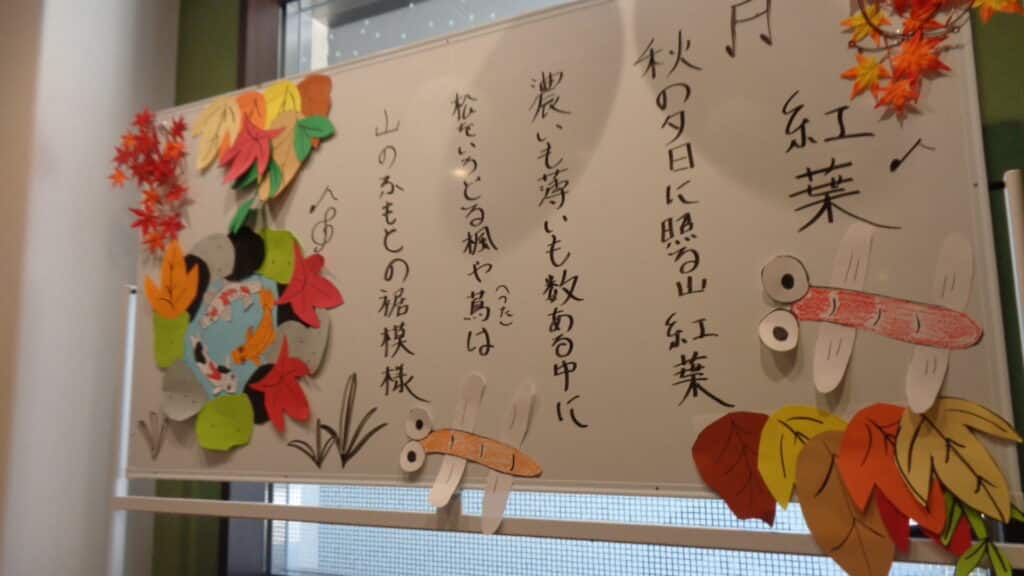 紅葉
秋の夕日に照る山 紅葉
濃いも薄いも数ある中に
松をいろどる楓や蔦は
(つた)
山のふもとの裾模様